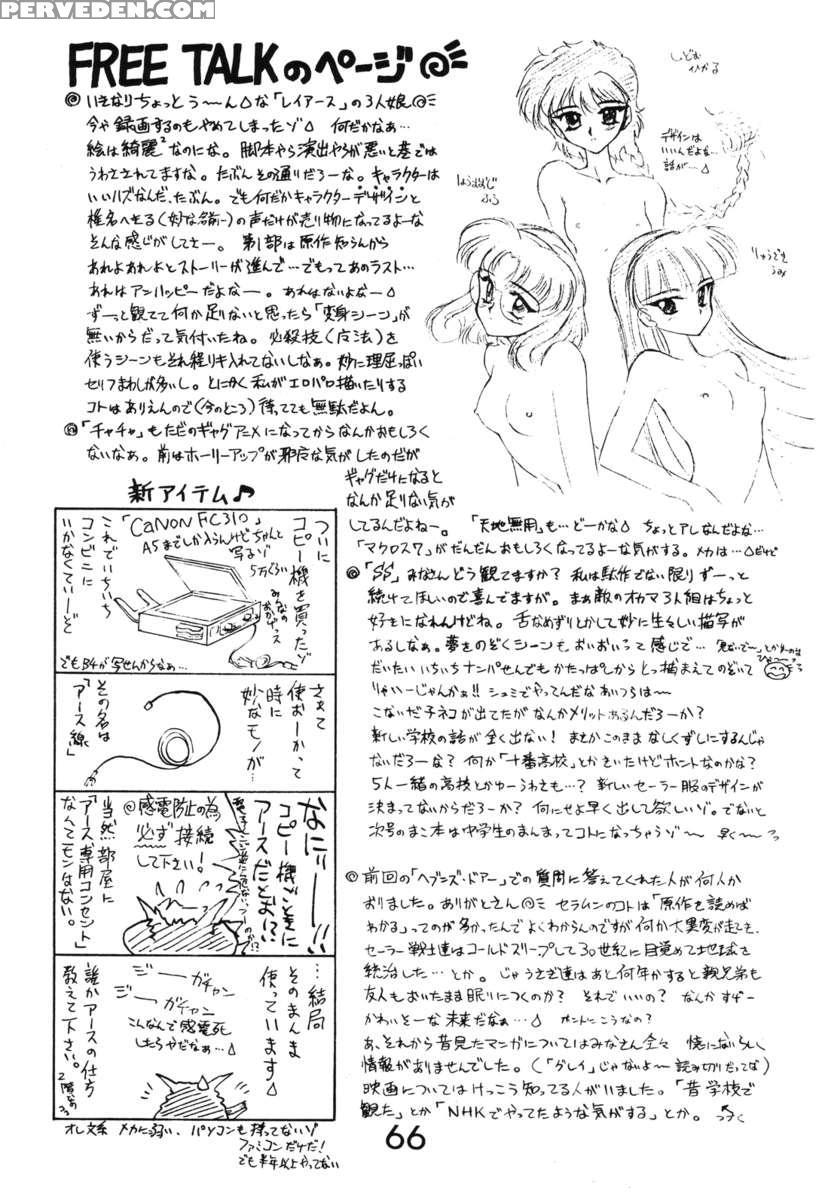 PERVEDEN.COM
FREE TALKのページ
いきなりちょっとう〜〜ん△な「レイアース」の3人娘
今や録画するのもやめてしまったゾ△ 何だかなぁ…
絵は綺麗²なのにな。脚本やら演出やらが悪いと巷では
うわさされてますな。たぶんその通りだろーな。キャラクターは
いいハズなんだ、たぶん。でも何だかキャラクターデザインと
椎名へきる(妙な名前ー)の声だけが売り物になってるよーな
そんな感じがしてさー。第1部は原作知らんから
あれよあれよとストーリーが進んで…でもってあのラスト…
あれはアンハッピーだよなー。あれはないよなー△
ずーっと観てて何か足りないと思ったら「変身シーン」が
無いからだって気付いたね。必殺技(魔法)を
使うシーンもそれ程リキ入れてないしなぁ。妙に理屈っぽい
セリフまわしが多いし。とにかく私がエロパロ描いたりする
コトはありえんので(今のところ)待ってても無駄だよん。
「チャチャ」もただのギャグアニメになってからなんかおもしろく
ないなぁ。前はホーリーアップが邪魔な気がしたのだが
ギャグだけになると
なんか足りない気が
してるんだよねー。「天地無用」も…どーかな△ ちょっとアレなんだよな…
「マクロス7」がだんだんおもしろくなってるよーな気がする。メカは…△だけど
しどう
ひかる
デザインは
いいんだよな…
話が…△
ほうおうじ
ふう
りゅうざき
うみ
新アイテム♪
ついに
コピー機を買ったゾ
「CANON FC310」
A5までしか入らんけどちゃんと
写るゾ
5万くらい
みんなの
おかげっス
これでいちいち
コンビニに
いかなくていーゾと
でもB4が写せんからなぁ…
さぁて
使おーかって
時に
妙なモノが…
その名は
「アース線」
なにィーー!!
コピー機ごときに
アースだとお!?
@感電防止の為
必ず接続
して下さい!
当然部屋に
「アース専用コンセント」
なんてモンはない。
…結局
そのまんま
使っています△
ジーーガチャン
ジーーガチャン
こんなんで感電死
したらやだなぁ…△
誰かアースの仕方
教えて下さい。
2階なの
オレ文系 メカに弱い、パソコンも持ってないゾ
ファミコンだけだ!
でも半年以上やってない
「SS」みなさんどう観てますか?私は駄作でない限りずーっと
続けてほしいので喜んでますが。まぁ敵のオカマ3人組はちょっと
好きになれんけどね。舌なめずりとかして妙に生々しい描写が
あるしなぁ。夢をのぞくシーンもおいおいって感じで…
だいたいいちいちナンパせんでもかたっぱしからとっ捕まえてのぞいて
りゃいーじゃんかぁ!!シュミでやってんだなあいつらは〜
こないだ子ネコが出てたがなんかメリットあるんだろーか?
新しい学校の話が全く出ない!まさかこのままなしくずしにするんじゃ
ないだろーな?何か「十番高校」とかきいたけどホントなのかな?
5人一緒の高校とかゆーうわさも…?新しいセーラー服のデザインが
決まってないからだろーか?何にせよ早く出して欲しいゾ。でないと
次号のまこ本は中学生のまんまってコトになっちゃうゾ〜 早く〜
前回の「ヘブンズ・ドアー」での質問に答えてくれた人が何人か
おりました。ありがとさん セラムンのコトは「原作を読めば
わかる」ってのが多かったんでよくわからんのですが何か大異変が起きて、
セーラー戦士達はコールドスリープして30世紀に目覚めて地球を
統治した…とか。じゃうさぎ達はあと何年かすると親兄弟も
友人もおいたまま眠りにつくのか?それでいいの?なんかすげー
かわいそーな未来だなぁ…△ ホントにこうなの?
あ、それから昔見たマンガについてはみなさん全々
情報がありませんでした。(「グレイ」じゃないよ〜読み切りだってな)
映画についてはけっこう知ってる人がいました。「昔学校で
観た」とか「NHKでやってたような気がする」とか。 つづく
66